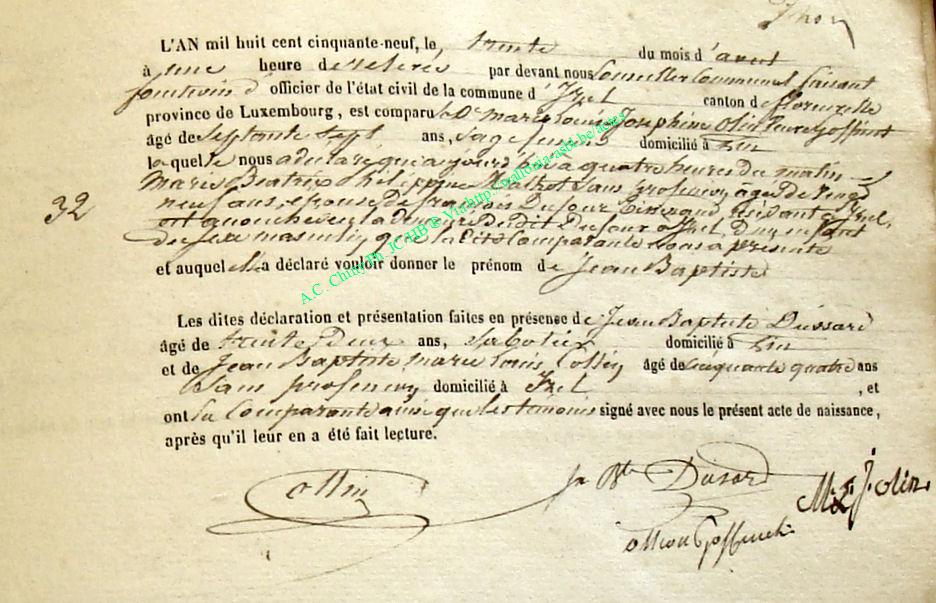 L'AN mil huit cent cinquante-neuf, le trente du mois d'avril
à une heure de relevée par devant nous Conseiller Communal faisant
fonctions d'officier de l'état civil de la commune d'Izel canton de florenville
province de Luxembourg, est comparu Marie Louise Josephine Olin
âgé de Septante Sept ans, Sage femme domicilié à
laquelle nous a déclaré qu'aujourd'hui à quatre heures du matin
Marie Beatrix Philippine Sans profession âgée de Vingt
32
neuf ans, epouse de françois Dufour résidant à Izel,
est accouchée en la demeure du dit Dufour à Izel, D'un enfant
du sexe masculin que la dite Comparante nous a présenté
et auquel elle a déclaré vouloir donner le prénom de Jean Baptiste
Les dites déclaration et présentation faites en présense de Jean Baptiste Dussard
âgé de trente Deux ans, Sabotier domicilié à
et de Jean Baptiste Marie Louis Collin âgé de Cinquante quatre ans
Sans profession domicilié à Izel, et
ont La Comparante ainsi que les témoins signé avec nous le présent acte de naissance,
après qu'il leur en a été fait lecture.
Dusard
M. L. J. Olin
A.C. Chiny Ph. JC/HB © Via http://wallonia-asbl.be/actes